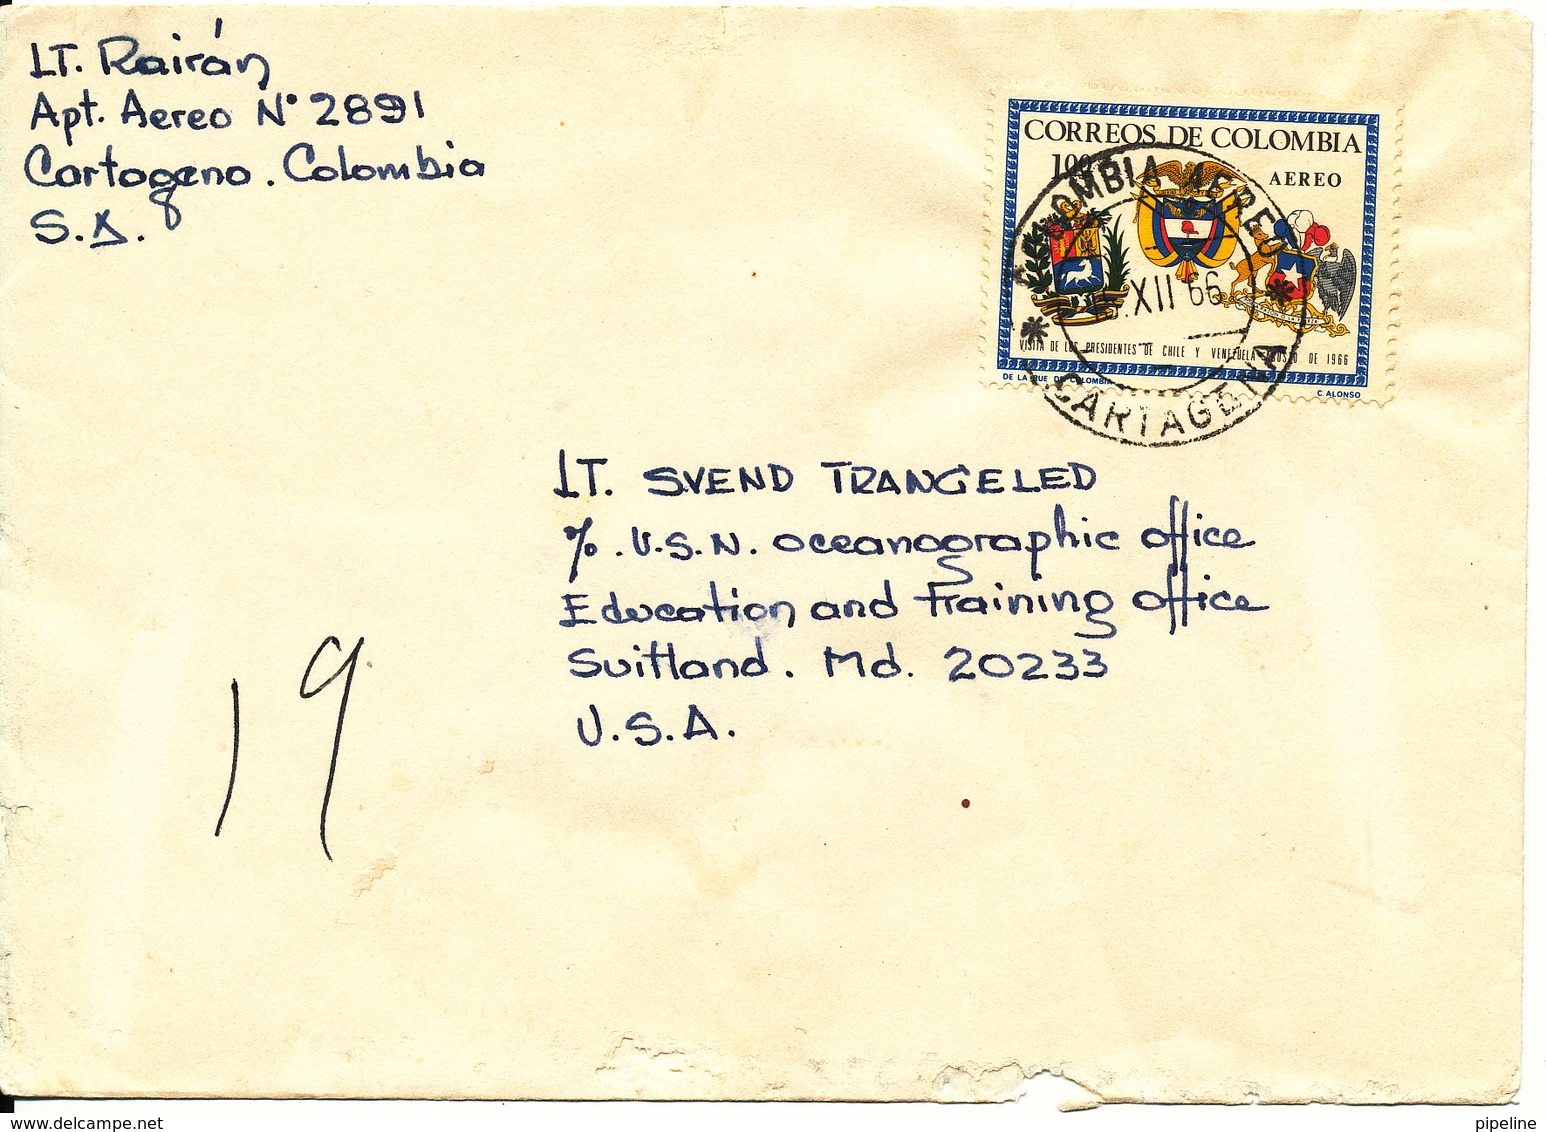 LT. Rairán
Apt. Aereo N° 2891
Cartagena. Colombia
S.A.
CORREOS DE COLOMBIA
AEREO
COLOMBIA AEREO
XII 66
VISITA DE LOS PRESIDENTES DE CHILE Y VENEZUELA AGOSTO DE 1966
DE LA RUE DE COLOMBIA
C. ALONSO
* CARTAGENA *
LT. SVEND TRANGELED
% . U.S.N. oceanographic office
Education and Training office
Suitland. Md. 20233
U.S.A.
19
www.delcampe.net
pipeline